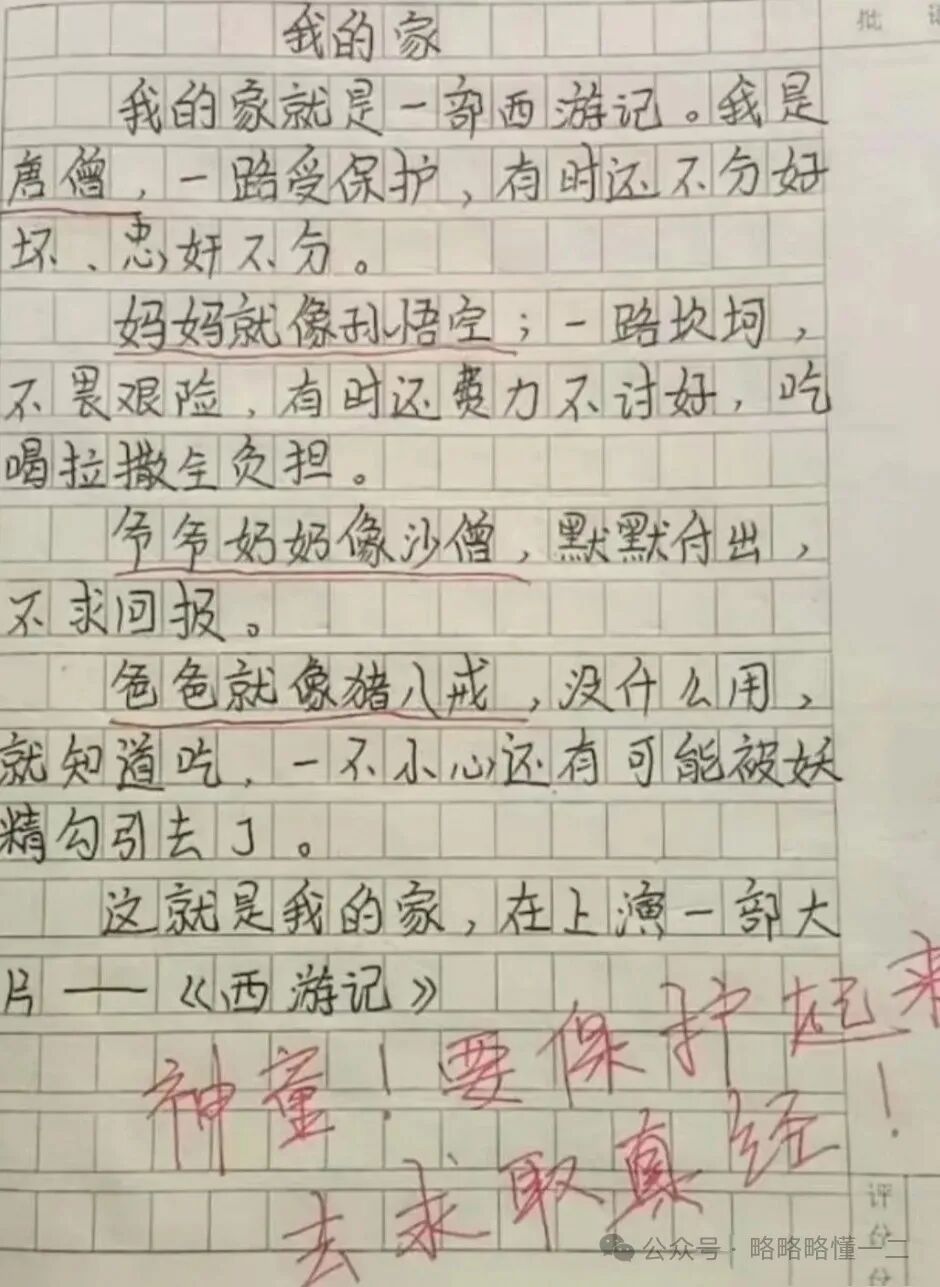 批
我的家
我的家就是一部西游记。我是
唐僧，一路受保护，有时还不分好
坏、忠奸不分。
妈妈就像孙悟空；一路坎坷，
不畏艰险，有时还费力不讨好，吃
喝拉撒全负担。
爷爷奶奶像沙僧，默默付出，
不求回报。
爸爸就像猪八戒，没什么用，
就知道吃，一不小心还有可能被妖
精勾引去了。
这就是我的家，在上演一部大
片——《西游记》
神童！要保护起来！
去求取真经
评
公众号·略略略懂一二